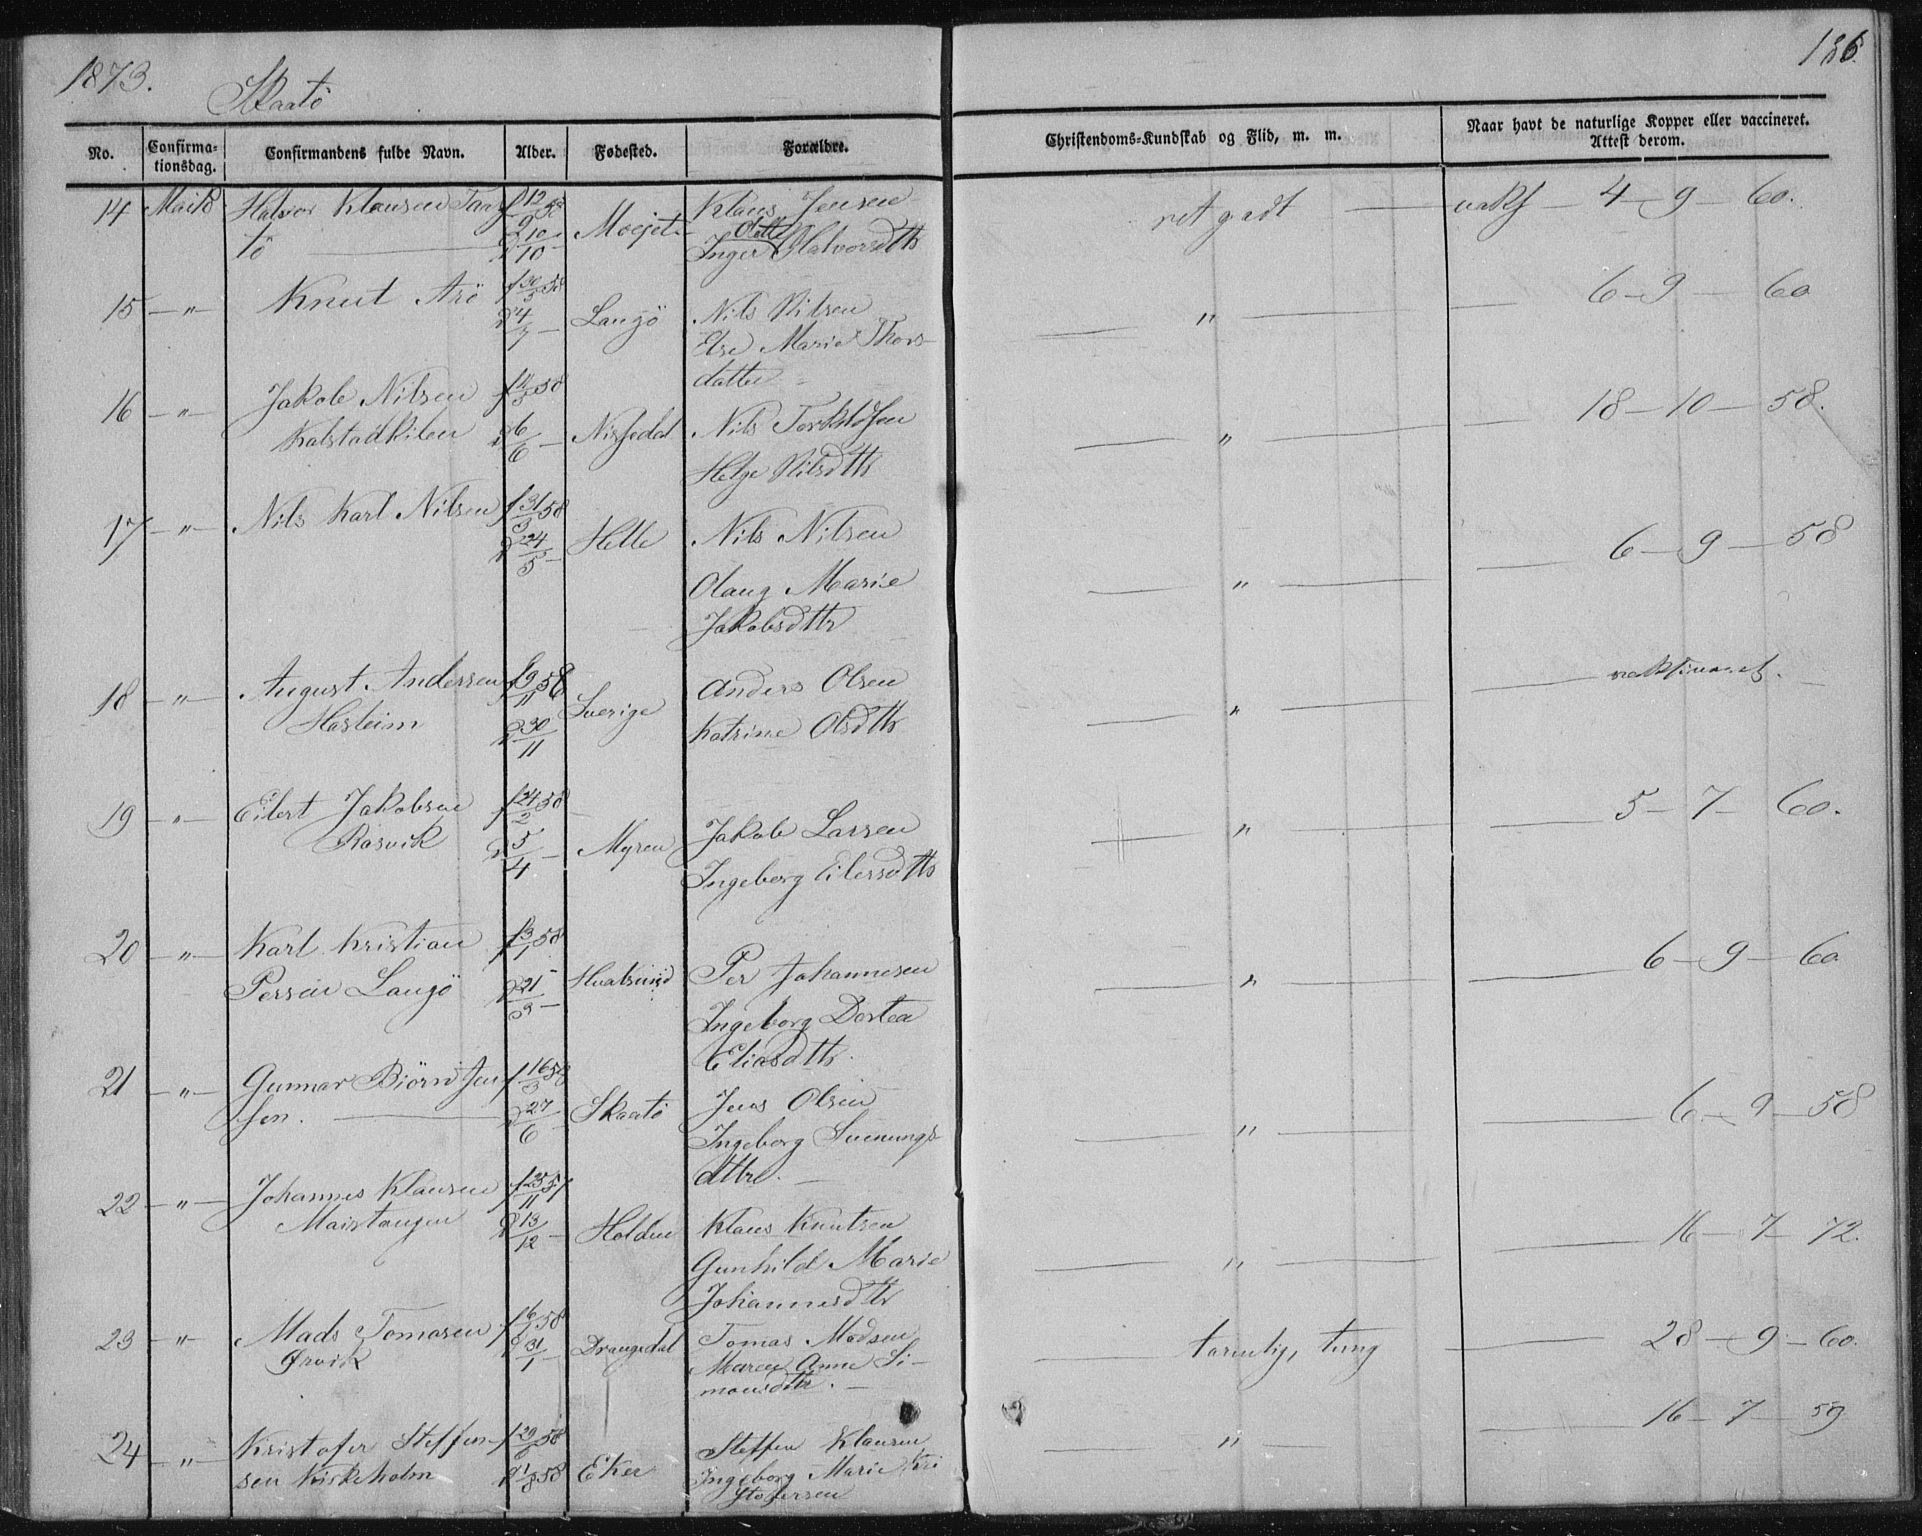 1873.
Skaatö
136.
No. Confirma-tionsdag. Confirmandens fulde Navn. Alder. Fødested. Forældre. Christendoms-Kundskab og Flid, m. m. Naar havt de naturlige Kopper eller vaccineret. Attest derom.
14 Mai 18 Halvor Klausen Taa- f 12/9 58 Klaus Jensen ret godt — vaks 4 — 9 — 60.
tö — d 10/10 Inger Olette Halvorsdtr
15 — " — Knut Arö f 30/5 58 Langö Nils Nilsen — " — 6 — 9 — 60
d 4/7 — Else Marie Thors-
datter
16 — " — Jakob Nilsen f 14/5 58 — 18 — 10 — 58.
Kalstadkilen d 6/6 — Nissedal Nils Torkildsen — " —
Helge Nilsdtr
17 — " — Nils Karl Nilsen f 31/3 58 Helle Nils Nilsen — 6 — 9 — 58
d 24/5 — Olaug Marie — " —
Jakobsdtr
18 — " — August Andersen f 9/11 58 Sverige Anders Olsen — " — vaksineret.
Hasleim d 30/11 Katrine Olsdtr
19 — " — Eilert Jakobsen f 24/2 58 — 5 — 7 — 60.
Rosvik d 5/4 — Myren Jakob Larsen — " —
Ingeborg Eilersdtr
20 — " — Karl Kristian f 3/1 58 — 6 — 9 — 60
Persen Langö d 21/3 — Hvalsund Per Johannesen — " —
Ingeborg Dortea
Eliasdtr.
21 — " — Gunnar Björn Jen- f 16/3 58 — 6 — 9 — 58
sen. — d 27/6 Skaatö Jens Olsen — " —
Ingeborg Svenungs-
dttr. —
22 — " — Johannes Klausen f 25/11 57 — 16 — 7 — 72.
Maistangen d 13/12 — Holden Klaus Knutsen
Gunhild Marie — " —
Johannesdtr
23 — " — Mads Tomasen f 6/1 58 Drangedal Tomas Madsen — tarvelig, tung — 28 — 9 — 60.
Ørvik d 31/1 Maren Anne Si-
monsdtr. —
24 — " — Kristofer Steffen- f 29/6 58 Eker Steffen Klausen — " — 16 — 7 — 59
sen Kirkeholm d 1/8 58 Ingeborg Marie Kri
stofersen